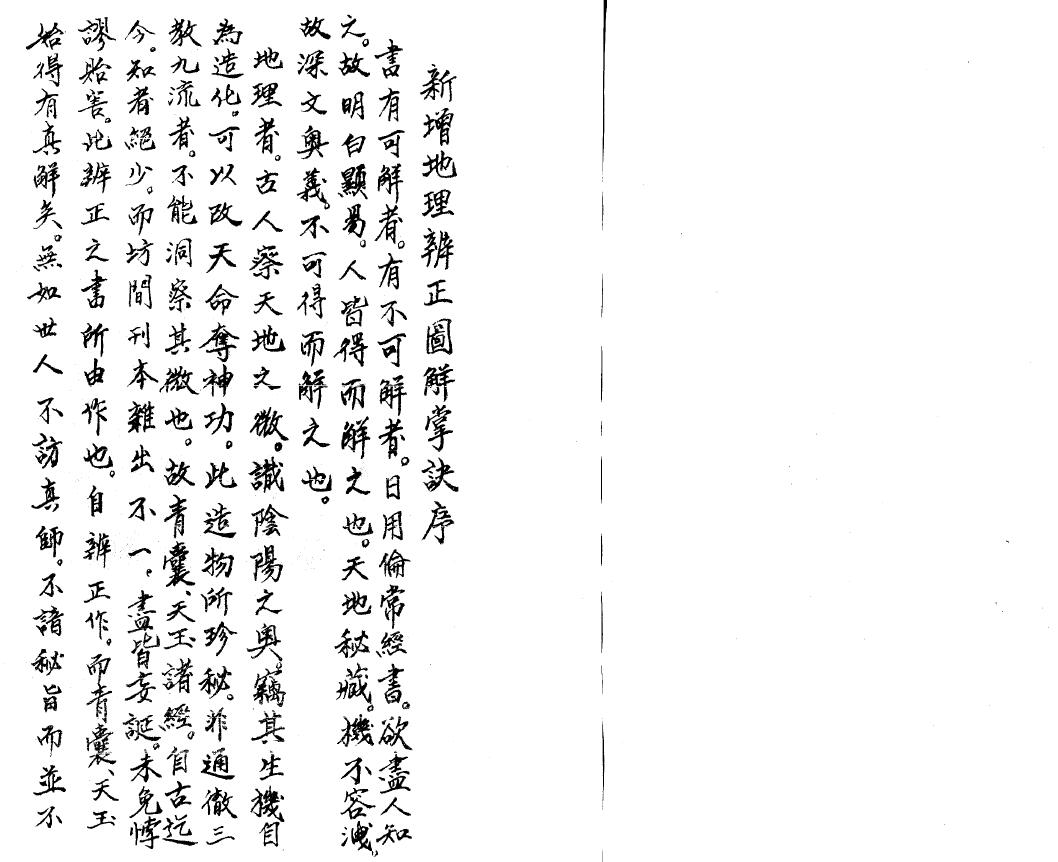 新增地理辨正圖解掌訣序
書有可解者。有不可解者。日用倫常經書。欲盡人知
之。故明白顯易。人皆得而解之也。天地秘藏。機不容洩。
故深文奧義。不可得而解之也。
地理者。古人察天地之微。識陰陽之奧。竊其生機自
為造化。可以改天命奪神功。此造物所珍秘。非通徹三
教九流者。不能洞察其微也。故青囊、天玉諸經。自古迄
今。知者絕少。而坊間刊本雜出不一。盡皆妄誕。未免悖
謬貽害。此辨正之書所由作也。自辨正作。而青囊、天玉
始得有真解矣。無如世人不訪真師。不諳秘旨而並不